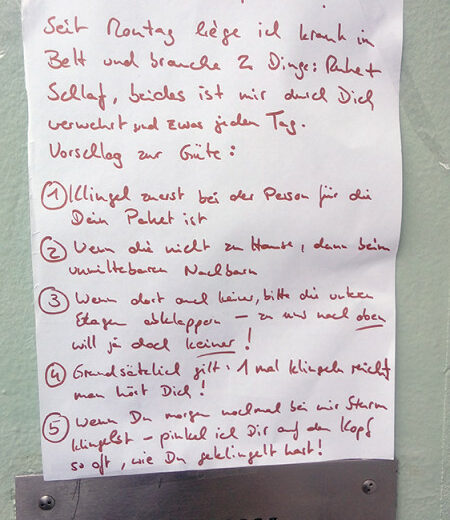 Seit Montag liege ich krank in
Bett und brauche 2 Dinge: Ruhe +
Schlaf, beides ist mir durch Dich
verwehrt und zwar jeden Tag.
Vorschlag zur Güte:
① Klingel zuerst bei der Person für die
Dein Paket ist
② Wenn die nicht zu Hause, dann beim
unmittelbaren Nachbarn
③ Wenn dort auch keiner, bitte die unteren
Etagen abklappern – zu uns nach oben
will ja doch keiner!
④ Grundsätzlich gilt: 1 mal klingeln reicht
man hört Dich!
⑤ Wenn Du morgen nochmal bei mir Sturm
klingelst – pinkel ich Dir auf den Kopf
so oft, wie Du geklingelt hast!